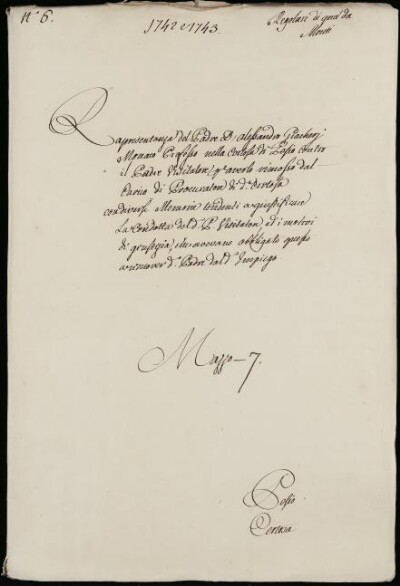 N° 6.
1742 e 1743.
Regolari di quà da
Monti
Rapresentanza del Padre D. Alessandro Giachery
Monaco Professo nella Certosa di Pesio contro
il Padre Visitatore, p. averlo rimosso dal
Carico di Procuratore di d.ª Certosa
con diverse Memorie tendenti a giustificare
la Condotta del d.° P. Visitatore, ed i motivi
di giustizia, che avevano obbligato questo
a rimover d.° Padre dal d.° Impiego.
Mazzo - 7.
Pesio
Certosa